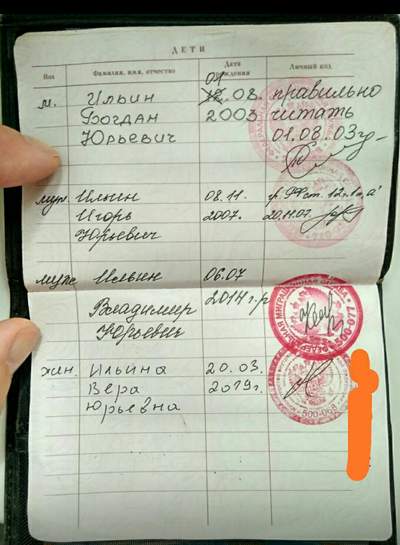 ДЕТИ
Пол Фамилия, имя, отчество Дата рождения Личный код
м. Ильин 01.08. правильно
Богдан 2003 читать
Юрьевич 01.08.03г.
муж Ильин 08.11.
Игорь 2007. 20.11.07
Юрьевич
муж Ильин 06.07
Владимир 2014 г.р
Юрьевич
жен. Ильина 20.03.
Вера 2019г.
Юрьевна
500-077
500-068